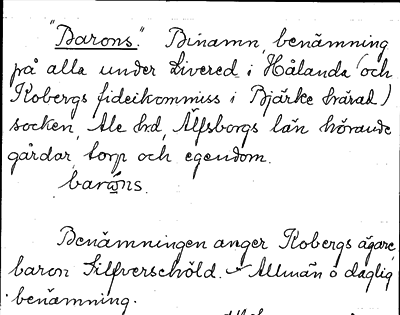 "Barons." Binamn, benämning
på alla under Livered i Hålanda (och
Kobergs fideikommiss i Bjärke härad)
socken, Ale hd, Älfsborgs län hörande
gårdar, torp och egendom.
barωns.
Benämningen anger Kobergs ägare,
baron Silfverschöld. - Allmän o daglig
benämning.